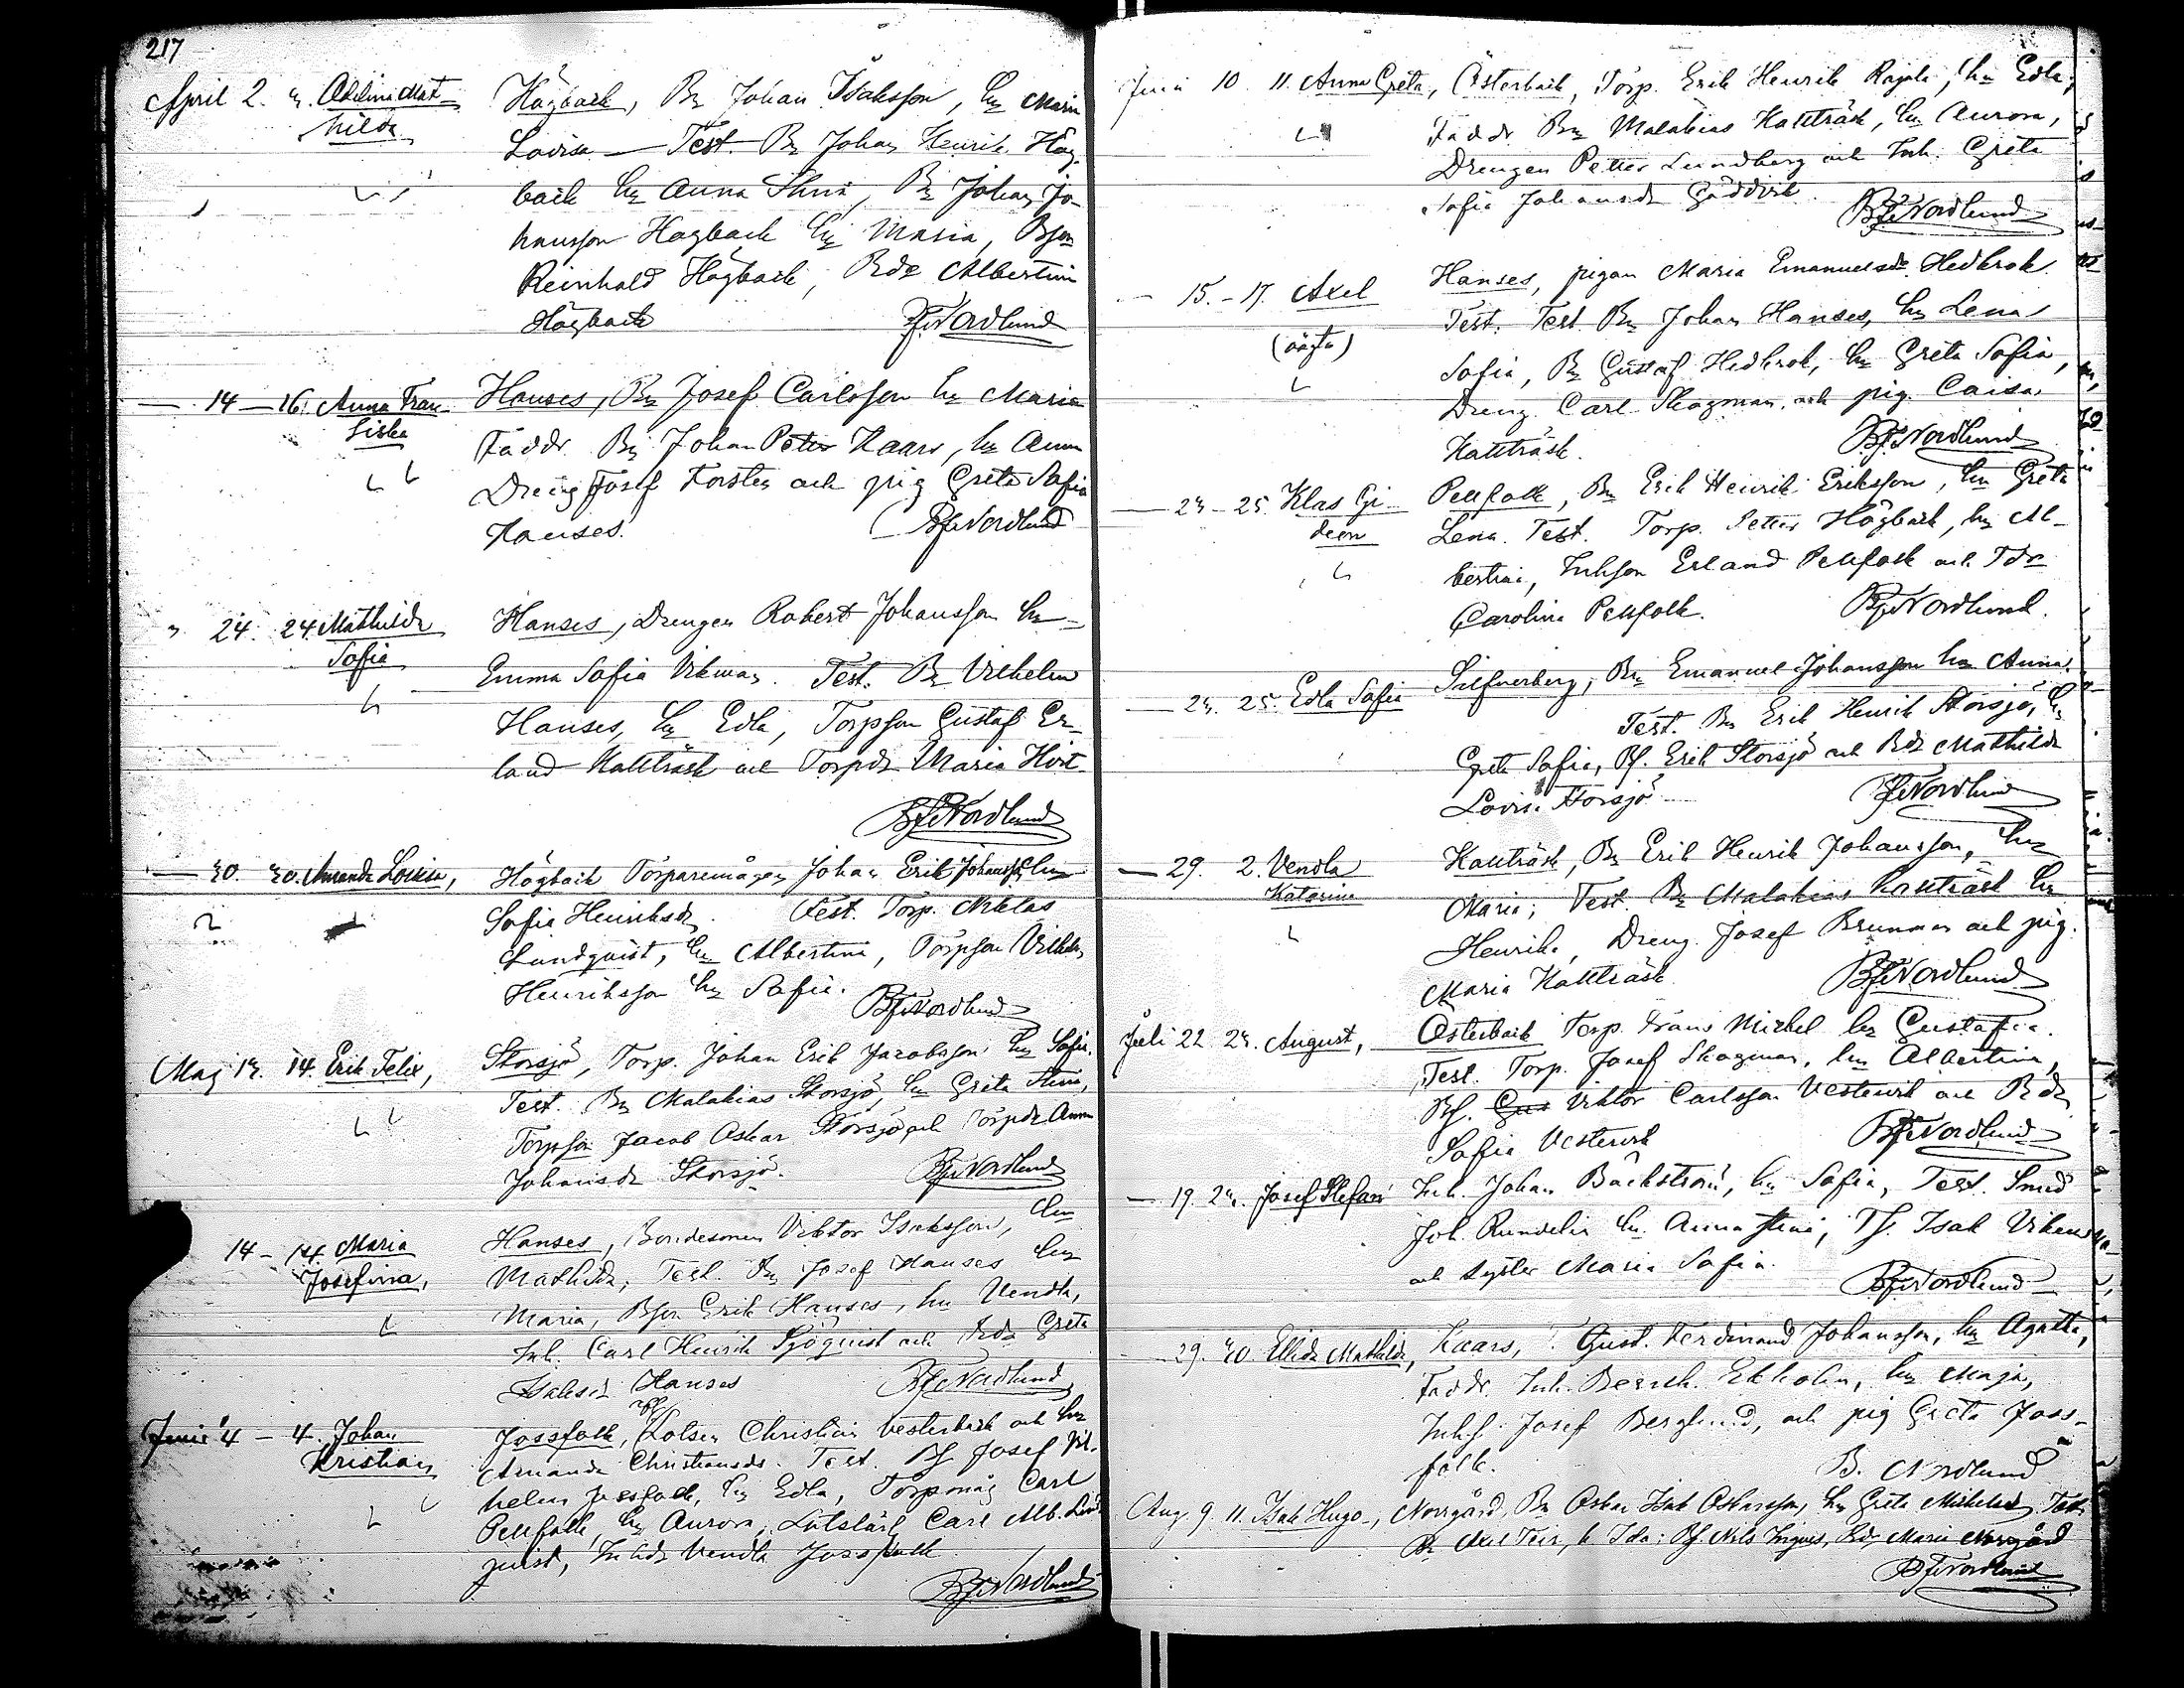 217
April 2. 3. Adelina Mat- Högback, Bn Johan Isaksson, hu Maria
hilda Lovisa — Test. Bn Johan Henrik Hög-
back hu Anna Stina, Bn Johan Jo-
hansson Högback hu Maria, Bson
Reinhold Högback, Bdr Albertina
Högback BFNordlund
— 14 — 16. Anna Fran- Hanses, Bn Josef Carlsson hu Maria
siska Faddr. Bn Johan Peter Kaars, hu Anna
Dreng Josef Forsten och pig Greta Sofia
Hanses. BFNordlund
" 24. 24. Mathilda Hanses, Drengen Robert Johansson hu
Sofia Emma Sofia Vikman. Test. Bn Vilhelm
Hanses, hu Edla, Torpson Gustaf Er-
land Kattträsk och Torpdr Maria Hört-
BFNordlund
— 30. 30. Amanda Lovisa, Högback Torparemågen Johan Erik Johansson hu
Sofia Henriksdr. Test. Torp. Niklas
Lundquist, hu Albertina, Torpson Vilhelm
Henriksson hu Sofia. BFNordlund
Maj 13. 14. Erik Felix, Storsjö, Torp. Johan Erik Jacobsson hu Sofia.
Test. Bn Malakias Storsjö, hu Greta Stina,
Torpson Jacob Oskar Storsjö och Torpdr Anna
Johansdr Storsjö. BFNordlund
14 — 14. Maria Hanses, Bondesonen Viktor Isaksson, hu
Josefina, Mathilda, Test. Bn Josef Hanses hu
Maria, Bson Erik Hanses, hu Vendla,
Inh. Carl Henrik Sjöquist och Bdr Greta
Isaksdr Hanses BFNordlund
Juni 4 — 4. Johan Jossfolk, Lotsen Christian Vesterback och hu
Kristian Amanda Christiansdr. Test. Bf Josef Vil-
helm Jossfolk, hu Edla, Torpmåg Carl
Pellfolk, hu Aurora, Lotslärl Carl Alb. Lind-
quist, Inhdr Vendla Jossfolk
BFNordlund
Juni 10. 11. Anna Greta, Österback, Torp. Erik Henrik Rajala, hu Edla;
Faddr. Bn Malakias Kattträsk, hu Aurora,
Drengen Petter Lundberg och Inh. Greta
Sofia Johansdr Gäddvik. BFNordlund
— 15. — 17. Axel Hanses, pigan Maria Emanuelsdr. Hedkrok
(oägta) Test. Test Bn Johan Hanses, hu Lena
Sofia, Bn Gustaf Hedkrok, hu Greta Sofia,
Dreng. Carl Skogman, och pig. Caisa
Kattträsk. BFNordlund
— 23 — 25. Klas Gi- Pellfolk, Bn Erik Henrik Eriksson, hu Greta
deon Lena. Test. Torp. Petter Högback, hu Al-
bertina, Inhson Erland Pellfolk och Tdr
Carolina Pellfolk. BFNordlund.
— 23. 25. Edla Sofia Silfverberg, Bn Emanuel Johansson hu Anna.
Test. Bn Erik Henrik Storsjö, hu
Greta Sofia, Bf. Erik Storsjö och Bdr Mathilda
Lovisa Storsjö BFNordlund
— 29. 2. Vendla Kattträsk, Bn Erik Henrik Johansson, hu
Katarina Maria; Test. Bn Malakias Kattträsk hu
Henrika, Dreng. Josef Brunman och pig.
Maria Kattträsk BFNordlund
Juli 22 23. August, Österback Torp. Frans Mickel hu Gustafva.
Test. Torp. Josef Skogman, hu Albertina,
Bf. Viktor Carlsson Vestervik och Bdr
Sofia Vestervik BFNordlund
— 19. 23. Josef Stefan Inh. Johan Bäckström, hu Sofia, Test. Smed
Joh. Rundelin hu Anna Stina, Tf. Isak Vikman
och syster Maria Sofia. BFNordlund
— 29. 30. Ellida Mathilda, Kaars, T. Gust. Ferdinand Johansson, hu Agatha,
Faddr. Inh. Berndt. Ekholm, hu Maja,
Inhf. Josef Berglund, och pig Greta Joss-
folk. B. Nordlund
Aug. 9. 11. Isak Hugo, Norrgård, Bn Oskar Isak Oskarsson, hu Greta Mickelsdr Test.
Bn Axel Teir, h Ida; Bf. Nils Ingves, Bdr Maria Norrgård
BFNordlund